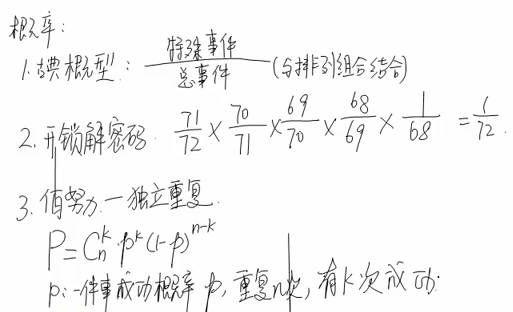 概率:
1.古典概型: 特殊事件/总事件 (与排列组合结合)
2.开锁解密码 71/72 × 70/71 × 69/70 × 68/69 × 1/68 = 1/72.
3.伯努力—独立重复.
P=C_n^k p^k (1-p)^{n-k}
p:一件事成功概率p,重复n次,有k次成功.